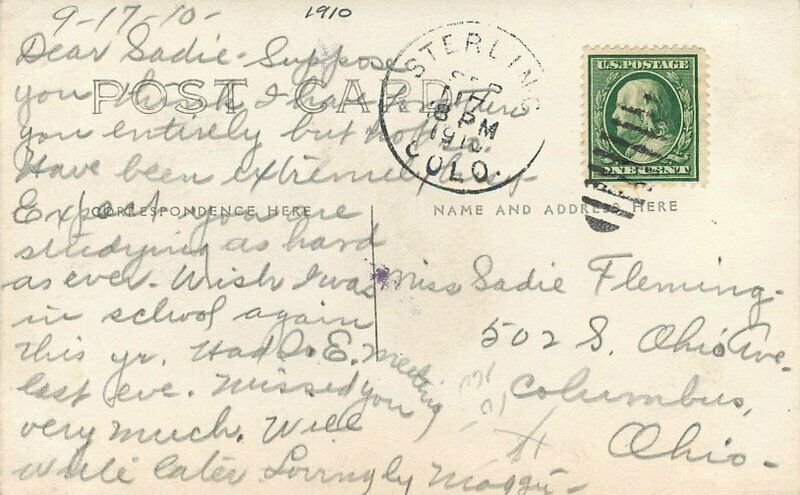 9-17-10-
1910
Dear Sadie- Suppose
you think I have
you entirely but
Have been extremely busy-
Expect you are
studying as hard
as ever. Wish I was
in school again
this yr. Had E. Meeting
last eve. Missed you
very much. Will
write later Lovingly
POST CARD
CORRESPONDENCE HERE
NAME AND ADDRESS HERE
STERLING
SEP
17
8 PM
1910
COLO.
U.S. POSTAGE
ONE CENT
Miss Sadie Fleming-
502 S. Ohio Ave.
Columbus,
Ohio-